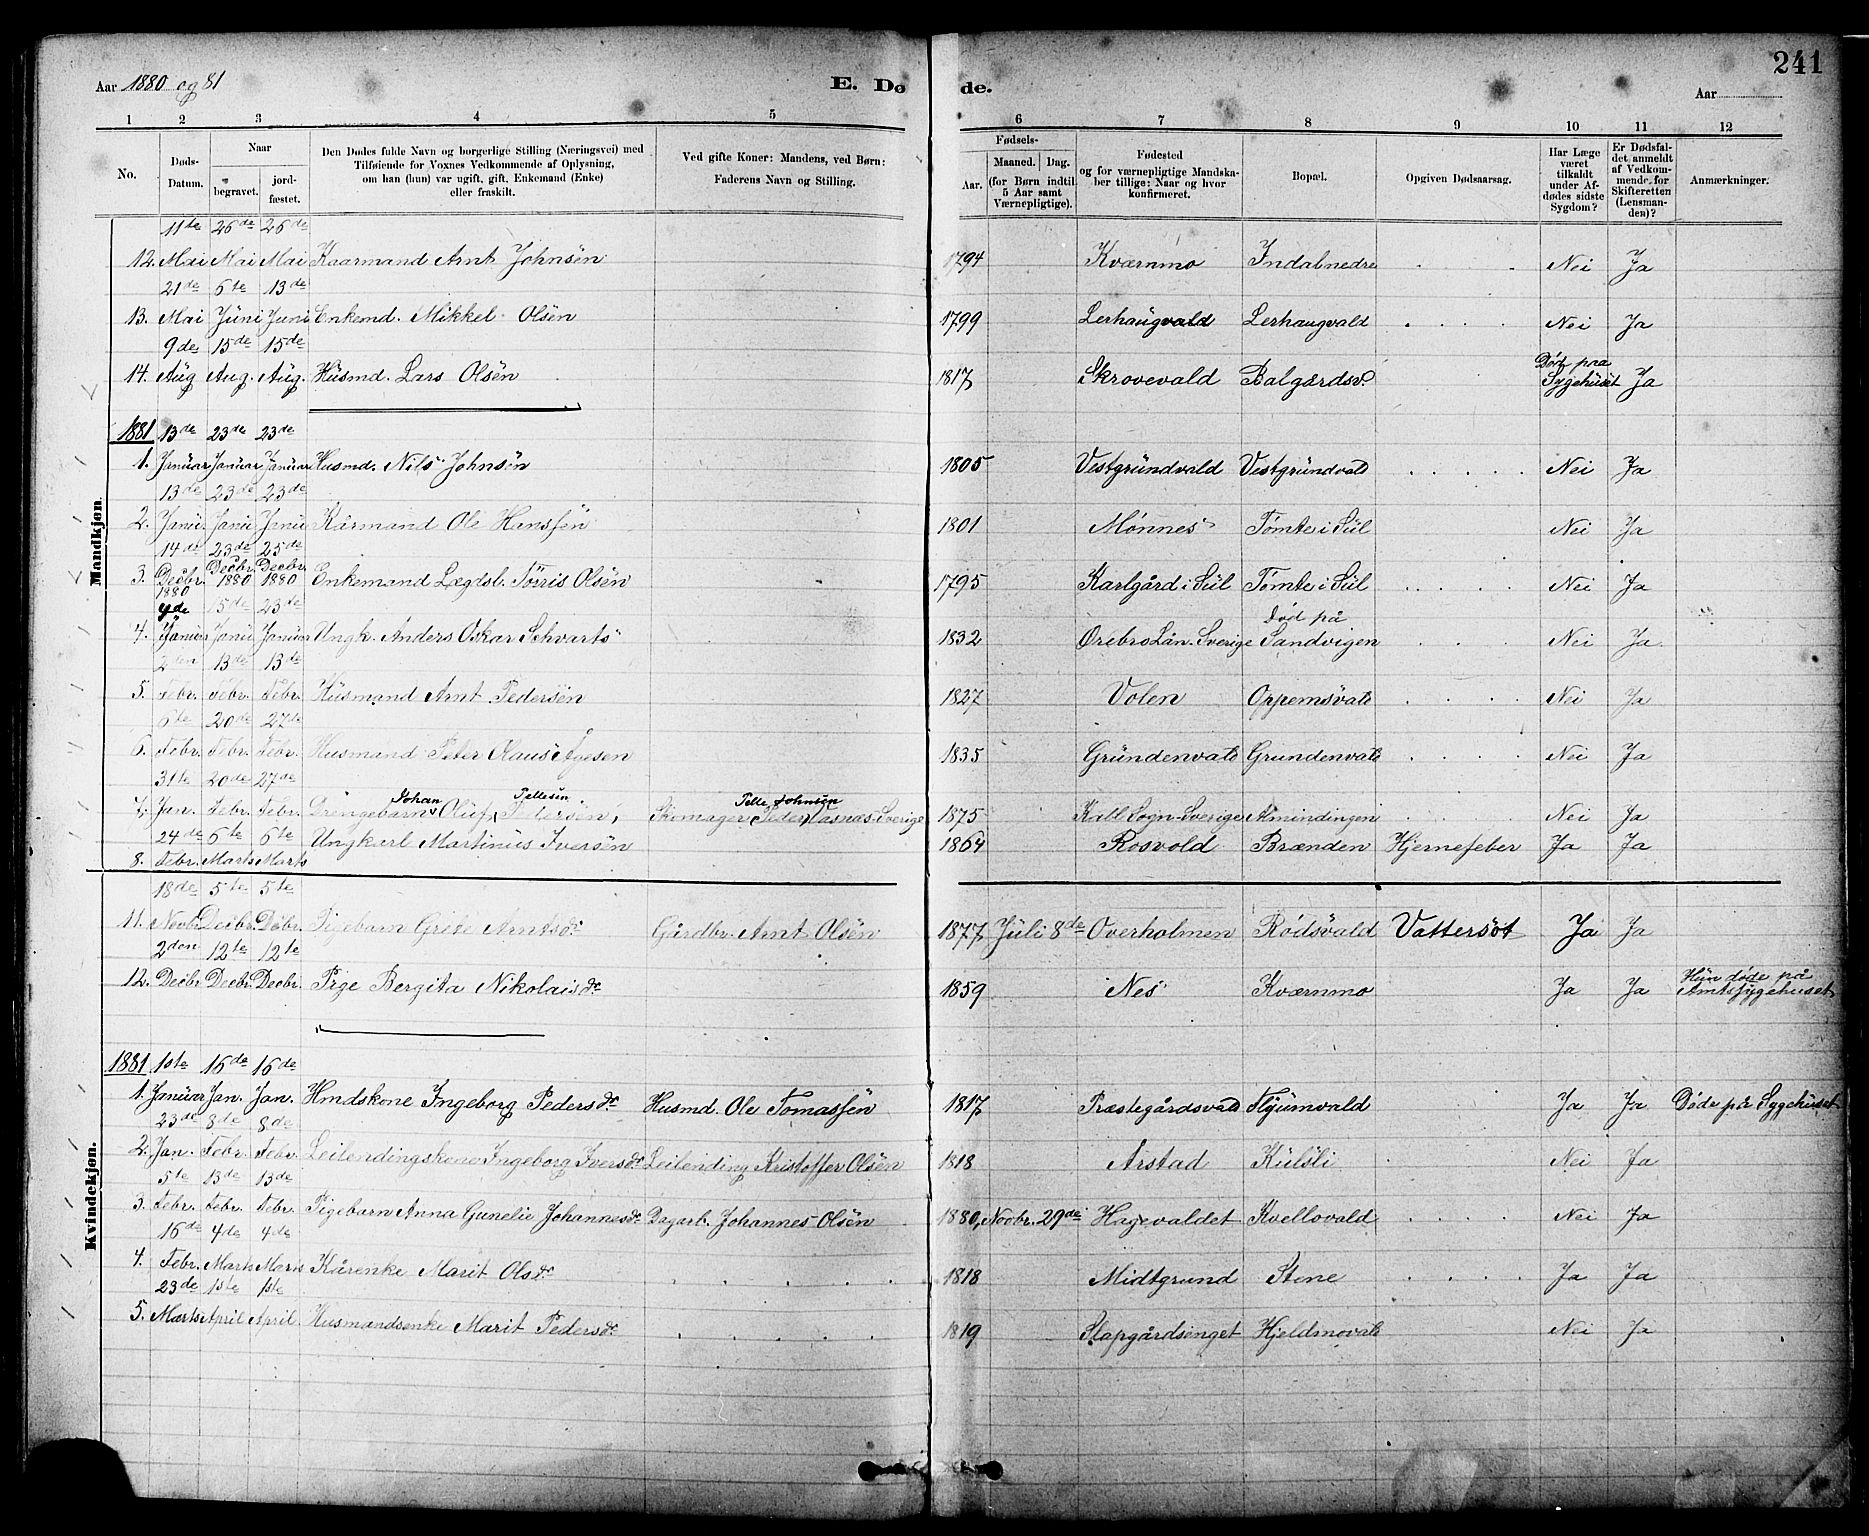 Aar 1880 og 81
E. Dø de.
Aar
241
1 2 3 4 5 6 7 8 9 10 11 12
No.
Døds-Datum.
Naar
begravet. jord-fæstet.
Den Dødes fulde Navn og borgerlige Stilling (Næringsvei) med
Tilføiende for Voxnes Vedkommende af Oplysning,
om han (hun) var ugift, gift, Enkemand (Enke)
eller fraskilt.
Ved gifte Koner: Mandens, ved Børn:
Faderens Navn og Stilling.
Fødsels-
Aar. Maaned. Dag.
(for Børn indtil
5 Aar samt
Værnepligtige).
Fødested
og for værnepligtige Mandska-
ber tillige: Naar og hvor
konfirmeret.
Bopæl.
Opgiven Dødsaarsag.
Har Læge
været
tilkaldt
under Af-
dødes sidste
Sygdom?
Er Dødsfal-
det anmeldt
af Vedkom-
mende for
Skifteretten
(Lensman-
den)?
Anmærkninger.
Mandkjøn.
11te 26de 26de
12. Mai Mai Mai Kaarmand Arnt Johnsen 1794 Kværnmo Indalnedre Nei Ja
21de 6te 13de
13. Mai Juni Juni Enkemd. Mikkel Olsen 1799 Lerhaugvald Lerhaugvald Nei Ja
9de 15de 15de
14. Aug Aug. Aug. Husmd. Lars Olsen 1817 Skrovevald Balgårdsv. Død paa Sygehuset Ja
1881 13de 23de 23de
1. Januar Januar Januar Husmd. Nils Johnsen 1805 Vestgrundvald Vestgrundvald Nei Ja
13de 23de 23de
2. Janu. Janu Janu Kårmand Ole Hanssen 1801 Mønnes Tømte i Sul Nei Ja
14de 23de 25de
3. Decbr. 1880 Decbr. 1880 Decbr. 1880 Enkemand Lægdsl. Tørris Olsen 1795 Karlgård i Sul Tømte i Sul Nei Ja
4de 15de 23de
4. Januar Janu Januar Ungk. Anders Oskar Schvarts 1832 Ørebro Län. Sverige Død på Sandvigen Nei Ja
2den 13de 13de
5. Febr. Febr. Febr. Husmand Arnt Pedersen 1827 Volen Oppemsvald Nei Ja
6te 20de 27de
6. Febr. Febr. Febr. Husmand Peter Olaus Ågesen 1835 Grundenvald Grundenvald Nei Ja
31te 20de 27de
7. Jan. Febr. Febr. Drengebarn Johan Oluf Pettersen, Pellesen Skomager Peder Pelle Johnsen Åsnes Sverige 1875 Kall Sogn Sverige Almindingen Nei Ja
24de 6te 6te
8. Febr. Marts Marts Ungkarl Martinus Iversen 1864 Rosvold Brænden Hjernefeber Ja Ja
Kvindekjøn.
18de 5te 5te
11. Novbr. Decbr. Decbr. Pigebarn Grete Arntsdr. Gårdbr. Arnt Olsen 1877 Juli 8de Overholmen Rødsvald Vattersot Ja Ja
2den 12te 12te
12. Decbr Decbr. Decbr. Pige Bergita Nikolaisdr. 1859 Nes Kværnmo Ja Ja Hun døde på Amtssygehuset
1881 1ste 16de 16de
1. Januar Jan. Jan. Hmdskone Ingeborg Pedersdr. Husmd. Ole Tomassen 1817 Præstegårdsvald Flyumvald Ja Ja Døde på Sygehuset
23de 8de 8de
2. Jan. Febr. Febr. Leilendingskone Ingeborg Iversdr. Leilending Kristoffer Olsen 1818 Arstad Kulsli Nei Ja
5te 13de 13de
3. Febr. Febr. Febr. Pigebarn Anna Gunelie Johannesdr. Dagarb. Johannes Olsen 1880, Novbr. 29de Hagevaldet Kvellovald Nei Ja
16de 4de 4de
4. Febr. Marts Marts Kårenke Marit Olsdr. 1818 Midtgrund Stene Ja Ja
23de 1ste 1ste
5. Marts April April Husmandsenke Marit Pedersdr. 1819 Slapgårdsenget Hjeldmovald Nei Ja